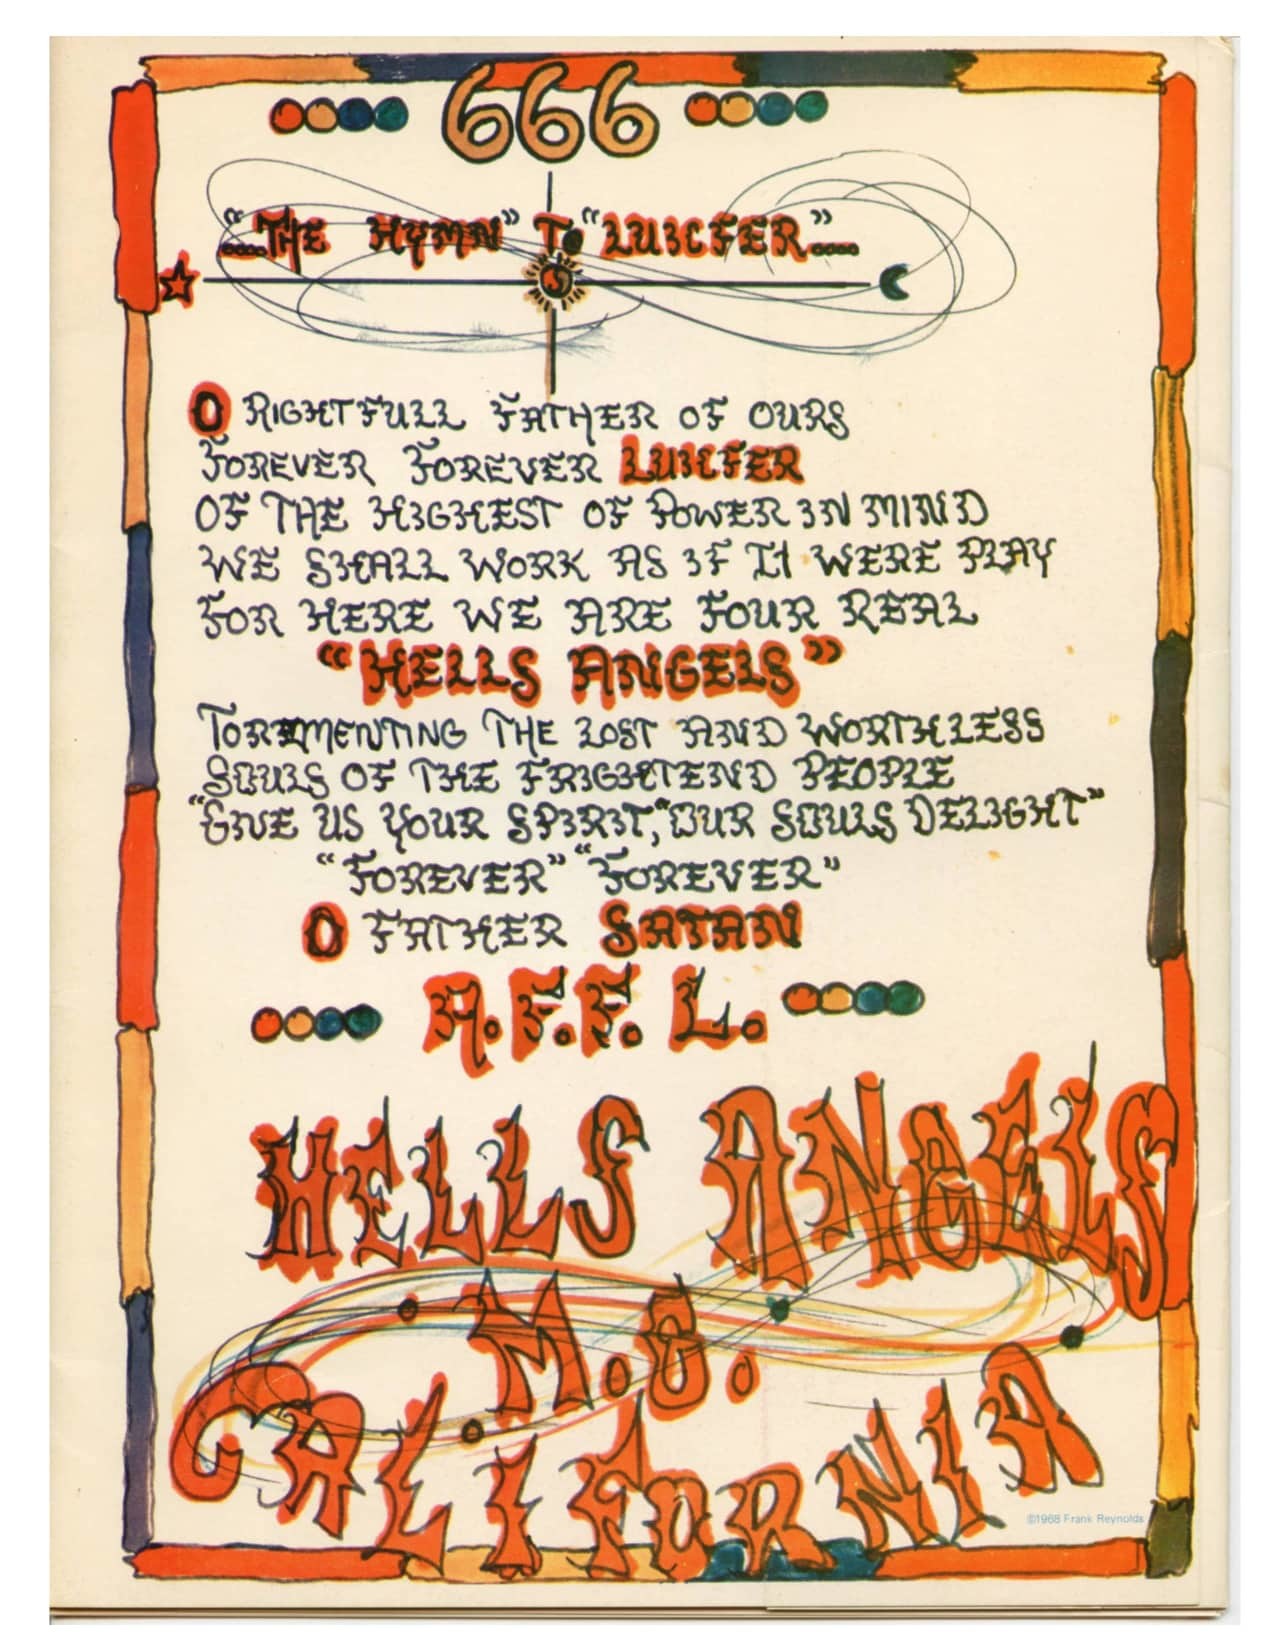 666
"....THE HYMN" To "LUICFER"....
O RIGHTFULL FATHER OF OURS
FOREVER FOREVER LUICFER
OF THE HIGHEST OF POWER IN MIND
WE SHALL WORK AS IF IT WERE PLAY
FOR HERE WE ARE FOUR REAL
"HELLS ANGELS"
TOREMENTING THE LOST AND WORTHLESS
SOULS OF THE FRIGHTEND PEOPLE
"GIVE US YOUR SPIRIT, "OUR SOULS DELIGHT"
"FOREVER" "FOREVER"
O FATHER SATAN
A.F.F.L.
HELLS ANGELS
M.C.
CALIFORNIA
©1968 Frank Reynolds